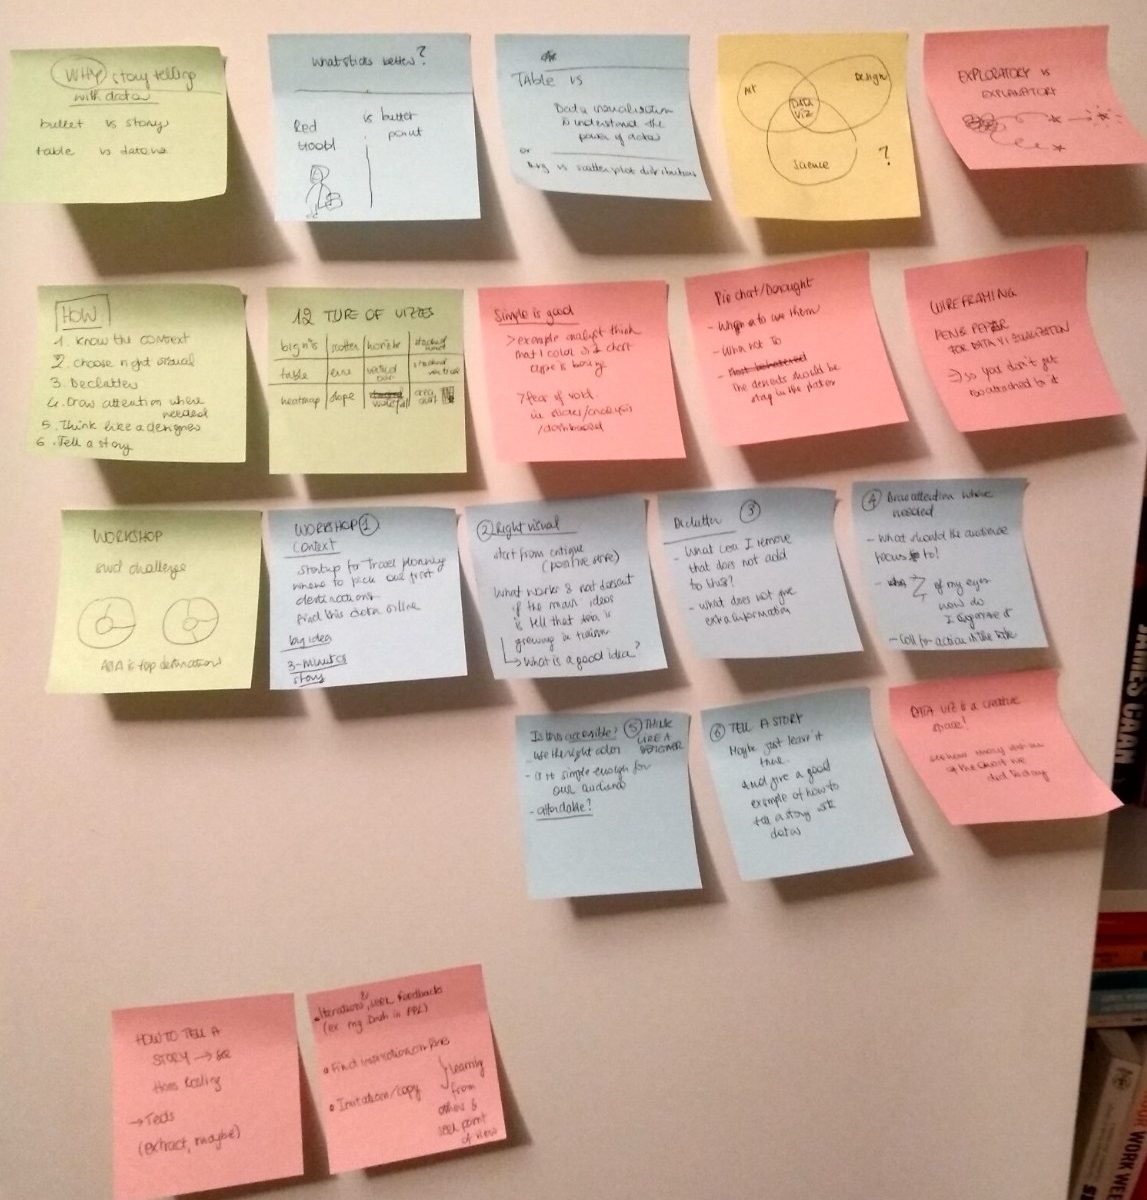 WHY story telling
with data
bullet vs story
table vs dataviz
What sticks better?
Red
Hood
is butter
point
TABLE vs
Data visualisation
to understand the
power of data
or
Avg vs scatterplot distribution
Art
Design
DATA
VIZ
Science
?
EXPLORATORY vs
EXPLANATORY
HOW
1. Know the context
2. choose right visual
3. Declutter
4. Draw attention where
needed
5. Think like a designer
6. Tell a story
12 TYPE OF VIZZES
big n°s
scatter
table
line
vertical
stacked
vertical
heatmap
slope
waterfall
area
Simple is good
> example analyst think
that 1 color or 1 chart
type is boring
> fear of void
in slides/analysis
/dashboard
Pie chart/Donought
- When to use them
- When not to
- The deserts should be
WIREFRAMING
PEN & PEPER
FOR DATA VIZ
=> so you don't get
too attached to it
WORKSHOP
swd challenge
ASIA is top destination
WORKSHOP 1
Context
Startup for travel planning
where to pick our first
destinations
Find this data online
big idea
3-minutes
story
2 Right visual
start from critique
(positive
What works & not doesn't
if the main ideas
is tell that
growing in tourism
What is a good idea?
Declutter 3
- What can I remove
that does not add
to this?
- what does not give
extra information
4 Draw attention where
needed
- What should the audience
focus to!
- of my eyes
how do
I
- Call for action in the title
Is this accessible? 5 THINK
LIKE A
DESIGNER
- use the right color
- is it simple enough for
our audience
- affordable?
6 TELL A STORY
Maybe just leave it
there
And give a good
example of how to
tell a story with
data
DATA VIZ is a creative
space!
see how many
of the chart we
did today
HOW TO TELL A
STORY →
Hans Rosling
→ Teds
(extract, maybe)
Iterations & user feedbacks
(ex my Dash in
• Find inspiration on
• Imitation/copy
learning
from
others &
seek point
of view
JAMES CAAN
WORK WEE